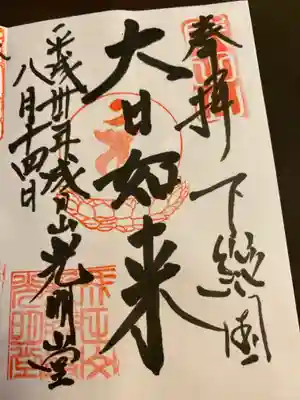 奉拝 下総国
大日如来
平成卅年 成田山光明堂
八月十四日